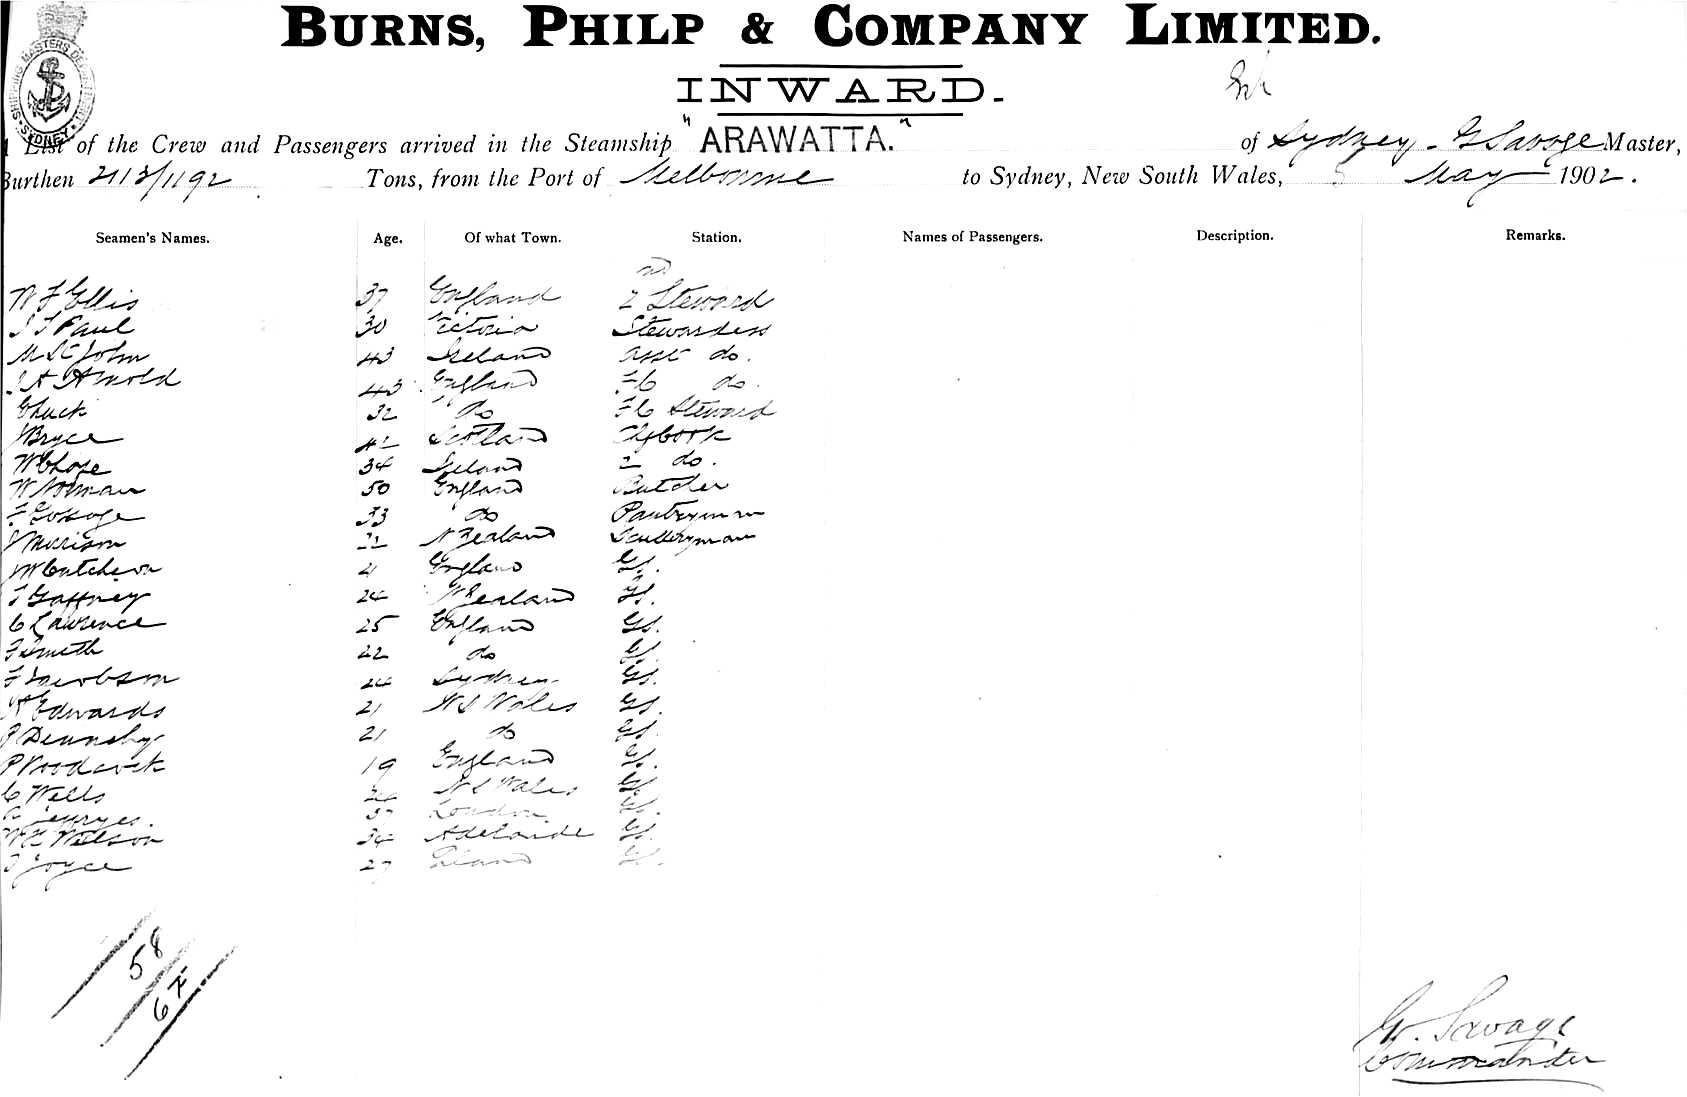 BURNS, PHILP & COMPANY LIMITED.
INWARD.
SHIPPING MASTERS DEPARTMENT SYDNEY
A List of the Crew and Passengers arrived in the Steamship "ARAWATTA." of Sydney - G Savage Master,
Burthen 2113/1192 Tons, from the Port of Melbourne to Sydney, New South Wales, 5 May 1902.
Seamen's Names. Age. Of what Town. Station. Names of Passengers. Description. Remarks.
W F Ellis 37 England 2 Steward
J F Paul 30 Victoria Stewardess
M St John 43 Ireland asst do.
J A Arnold 43 England FC do.
C Luck 32 do FC Steward
J Bryce 42 Scotland Ch Cook
34 Ireland 2 do.
W Norman 50 England Butcher
33 do Pantryman
J Morison 21 N Zealand Sculleryman
J McCutcheon 21 England GS.
F Gaffney 24 N Zealand GS.
C Lawrence 25 England GS.
F Smith 22 do GS.
F Jacobson 24 Sydney GS.
H Edwards 21 N S Wales GS.
P Dennehy 21 do GS.
P Woodcock 19 England GS.
C Wells N S Wales GS.
London GS.
Wilson 34 Adelaide GS.
Joyce 27 GS.
58
6
G. Savage
Commander